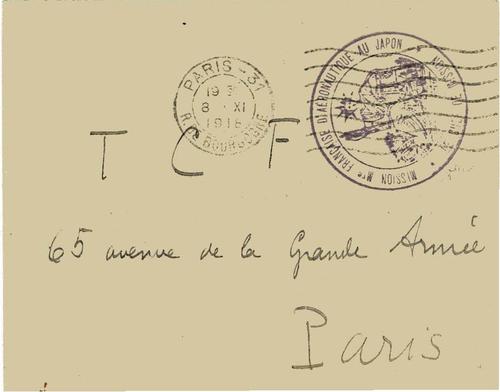 PARIS-31
19 3
8 XI
1918
R. BOURGOGNE
MISSION Mre FRANÇAISE D'AÉRONAUTIQUE AU JAPON
T C F
65 avenue de la Grande Armée
Paris